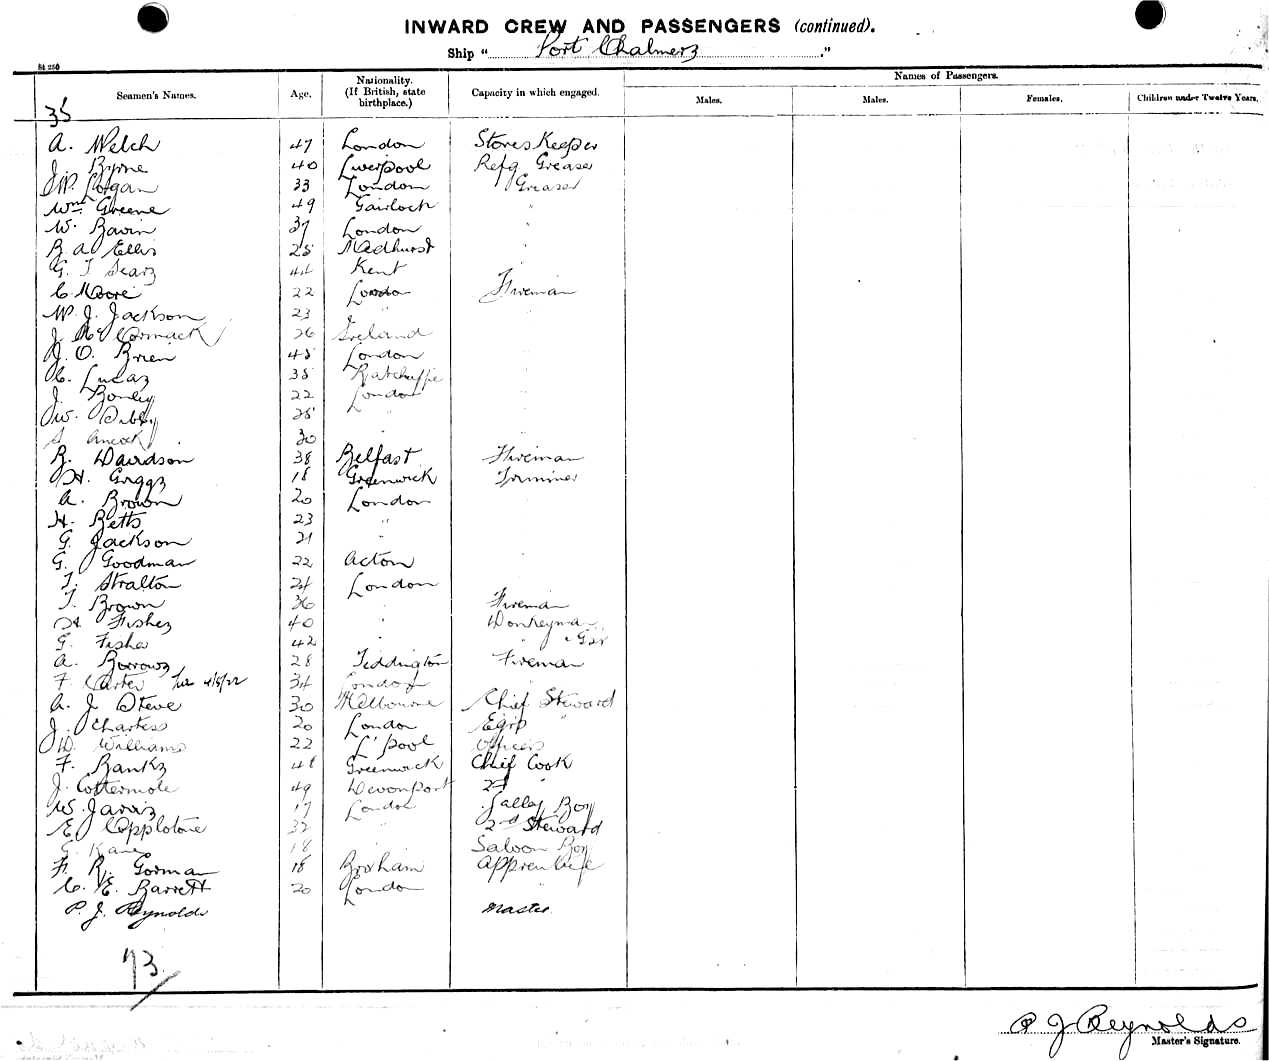 INWARD CREW AND PASSENGERS (continued).
Ship " Port Chalmers ."
Seamen's Names. Age. Nationality. (If British, state birthplace.) Capacity in which engaged. Names of Passengers.
Males. Males. Females. Children under Twelve Years.
35
A. Welch 47 London Stores Keeper
J. Byrne 40 Liverpool Refg Greaser
J W. Logan 33 London Greaser
Wm. Greene 49 Gairloch "
W. Bavin 37 London "
B A Ellis 25 Medhurst "
G. T Sears 44 Kent "
C Moore 22 London Fireman
W. J. Jackson 23 " "
J McCormack 26 Ireland "
J. O. Brien 45 London "
C. Lucas 35 Ratcliffe "
J. Bonley 22 London "
W. Dibby 25 " "
S 30 "
R. Davidson 38 Belfast Fireman
H. Griggs 18 Greenwick Trimmer
A. Brown 20 London "
H. Betts 23 " "
G. Jackson 21 " "
G. Goodman 22 Acton "
T. Stratton 24 London "
T. Brown 36 " Fireman
H. Fisher 40 " Donkeyman
G. Fisher 42 " " Gsr
A. Borrows 28 Teddington Fireman
F. Carter 4/5/22 34 London "
A. J. Steve 30 Melbourne Chief Steward
J. Charters 20 London "
W. Williams 22 L'pool Officers
F. Banks 48 Greenwick Chief Cook
J. Cottermole 49 Devonport 2nd "
W. Jarvis 17 London Galley Boy
E. Copplstone 32 " 2nd Steward
G. Kane 18 Saloon Boy
F. R. Gorman 18 Broxham Apprentice
C. E. Barrett 20 London "
P. J. Reynolds Master
73
P J Reynolds
Master's Signature.